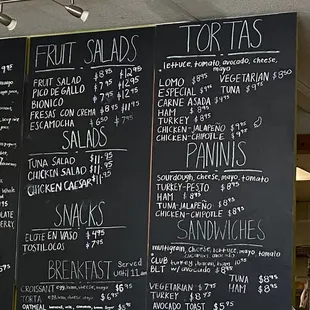 FRUIT SALADS
FRUIT SALAD $8.95 $12.95
PICO DE GALLO $7.95 $12.95
BIONICO $7.95 $12.95
FRESAS CON CREMA $8.95 $11.95
ESCAMOCHA $6.50 $7.95
SALADS
TUNA SALAD $11.95
CHICKEN SALAD $11.95
CHICKEN CAESAR $11.95
SNACKS
ELOTE EN VASO $4.95
TOSTILOCOS $7.95
BREAKFAST SERVED UNTIL 11AM
CROISSANT egg, ham, cheese, mayo $6.95
TORTA $6.95
OATMEAL $5.95
TORTAS
lettuce, tomato, avocado, cheese, mayo
LOMO $8.95 VEGETARIAN $8.50
ESPECIAL $9.95 TUNA $9.95
CARNE ASADA $9.95
HAM $8.95
TURKEY $8.95
CHICKEN-JALAPEÑO $9.95
CHICKEN-CHIPOTLE $8.95
PANINIS
sourdough, cheese, mayo, tomato
TURKEY-PESTO $8.95
HAM $8.95
TUNA-JALAPEÑO $8.95
CHICKEN-CHIPOTLE $8.95
SANDWICHES
multigrain, cheese, lettuce, mayo, tomato
CLUB turkey, bacon, ham
BLT w/ avocado $8.95
TUNA $8.95
VEGETARIAN $7.95 HAM $8.95
TURKEY $8.95
AVOCADO TOAST $5.95